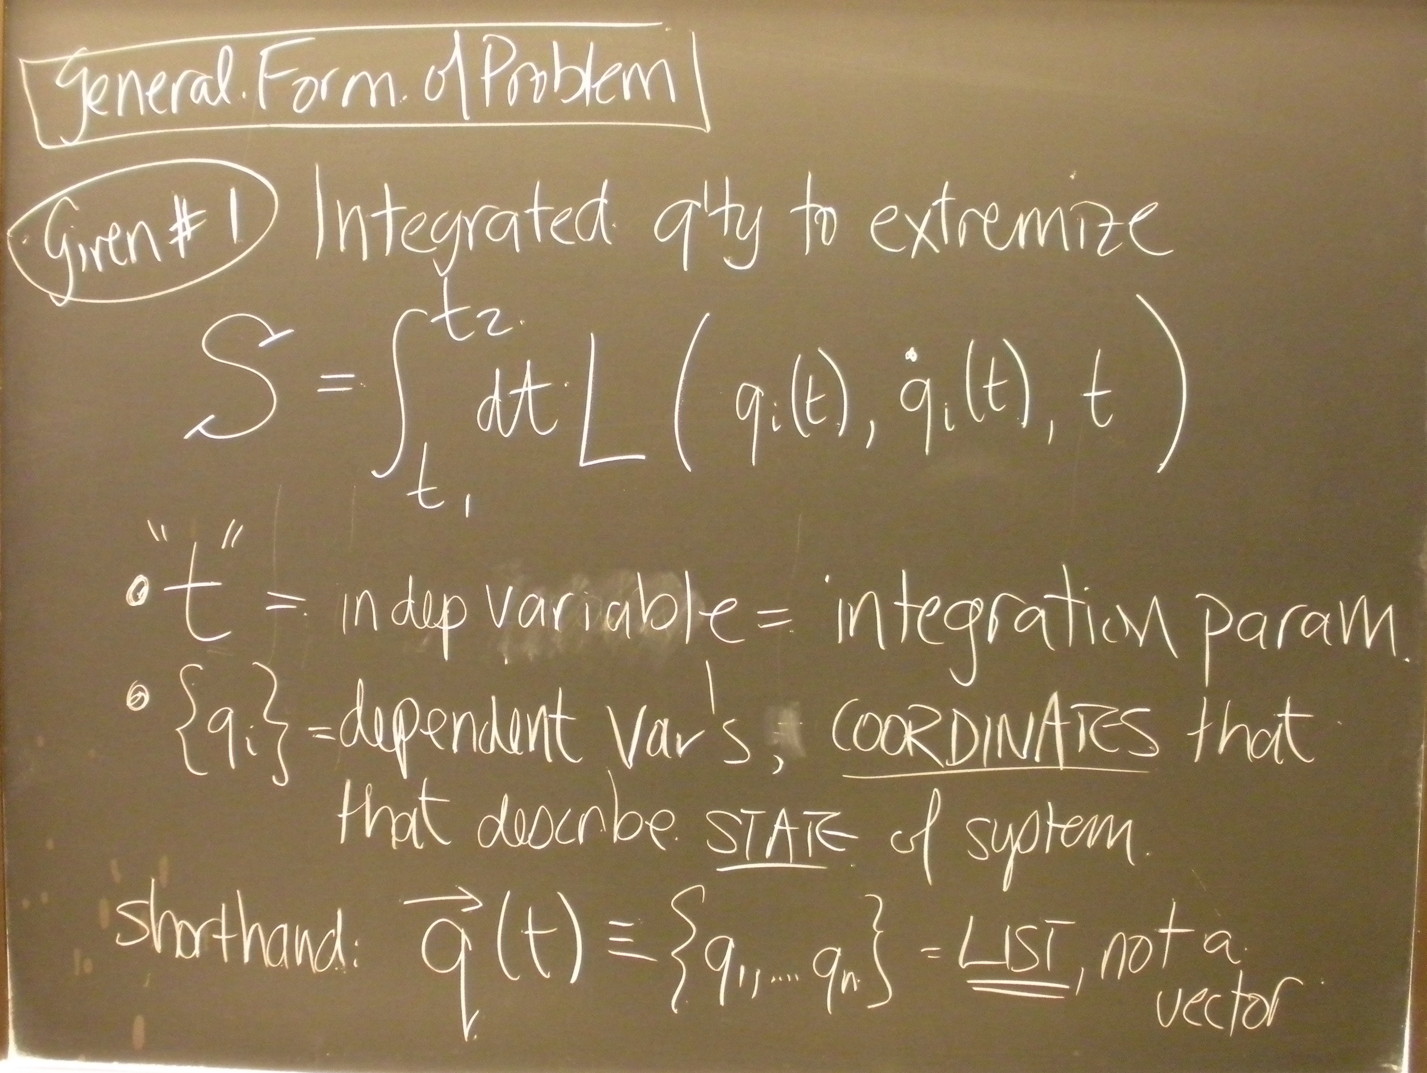 General Form of Problem
Given #1 Integrated q'ty to extremize
S = ∫_{t₁}^{t₂} dt L ( qᵢ(t), q̇ᵢ(t), t )
• "t" = indep variable = integration param.
• {qᵢ} = dependent var's, COORDINATES that
that describe STATE of system.
shorthand: q⃗(t) ≡ {q₁,.... qₙ} = LIST, not a
vector